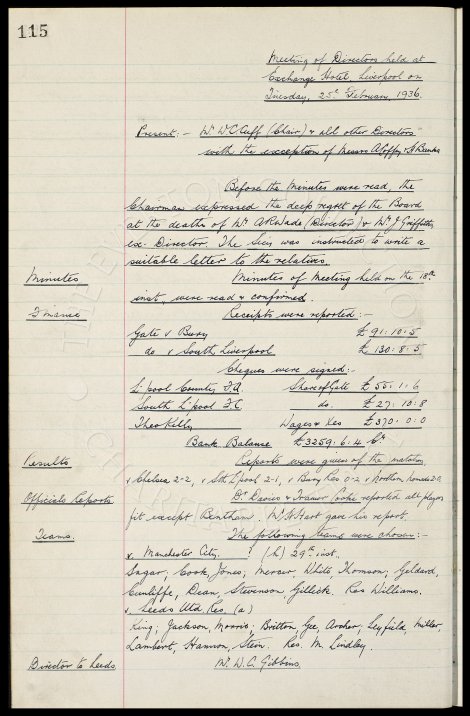 115
Meeting of Directors held at
Exchange Hotel, Liverpool on
Tuesday, 25th February, 1936.
Present:- Mr W.C. Cuff (Chair) & all other Directors
with the exception of Messrs A Coffey & A Banks
Before the Minutes were read, the
Chairman expressed the deep regret of the Board
at the deaths of Mr A R Wade (Director) & Mr J Griffiths
ex-Director. The Secy was instructed to write a
suitable letter to the relatives.
Minutes Minutes of Meeting held on the 18th
inst, were read & confirmed.
Finance Receipts were reported:-
Gate v Bury £91:10:5
do v South Liverpool £130:8:5
Cheques were signed:-
L'pool County F.A. Share of Gate £55:1:6
South L'pool F.C. do. £27:10:8
Theo Kelly Wages & Xes £370:0:0
Bank Balance £3259:6:4 Cr
Results Reports were given of the matches
v Chelsea 2-2, v Sth L'pool 2-1, v Bury Res 0-2, v
Officials Reports Dr Davies & Trainer Cooke reported all players
fit except Bentham. Mr H Hart gave his report.
Teams. The following teams were chosen:-
v. Manchester City. (h) 29th inst.
Sagar; Cook, Jones; Mercer, White, Thomson; Geldard,
Cunliffe, Dean, Stevenson, Gillick. Res Williams.
v. Leeds Utd Res. (a)
King; Jackson, Morris; Britton, Gee, Archer; Leyfield, Miller,
Lambert, Hannon, Stein. Res. M. Lindley.
Director to Leeds Mr. W.C. Gibbins.